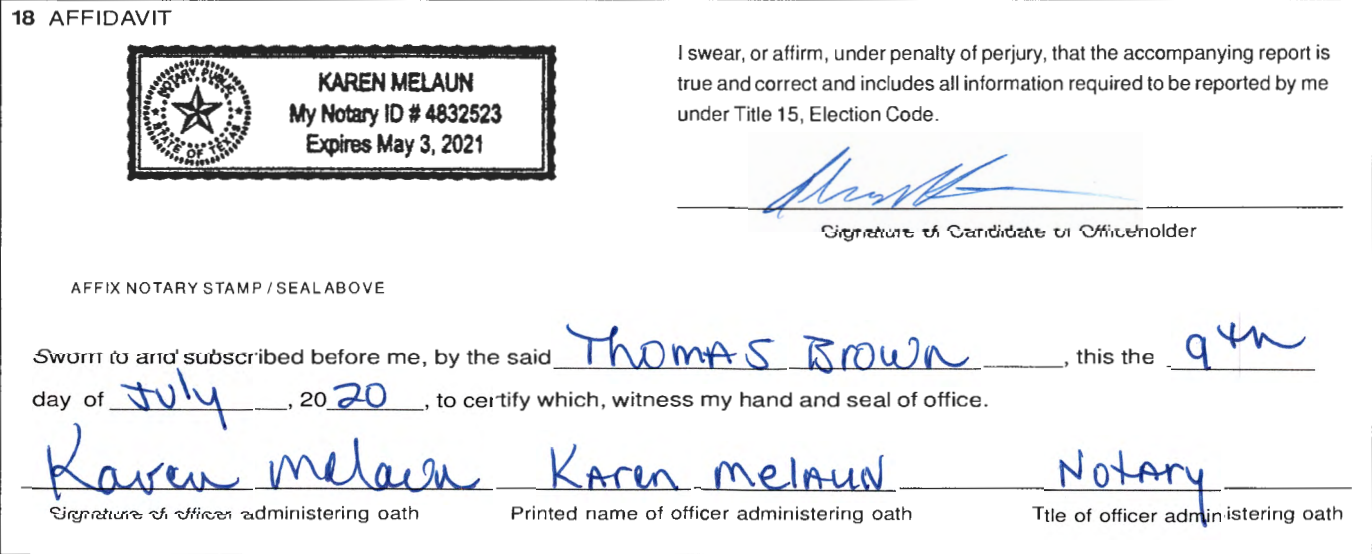 18 AFFIDAVIT
NOTARY PUBLIC
STATE OF TEXAS
KAREN MELAUN
My Notary ID # 4832523
Expires May 3, 2021
I swear, or affirm, under penalty of perjury, that the accompanying report is
true and correct and includes all information required to be reported by me
under Title 15, Election Code.
Signature of Candidate or Officeholder
AFFIX NOTARY STAMP / SEAL ABOVE
Sworn to and subscribed before me, by the said Thomas Brown, this the 9th
day of July, 2020, to certify which, witness my hand and seal of office.
Karen Melaun Karen Melaun Notary
Signature of officer administering oath Printed name of officer administering oath Ttle of officer administering oath